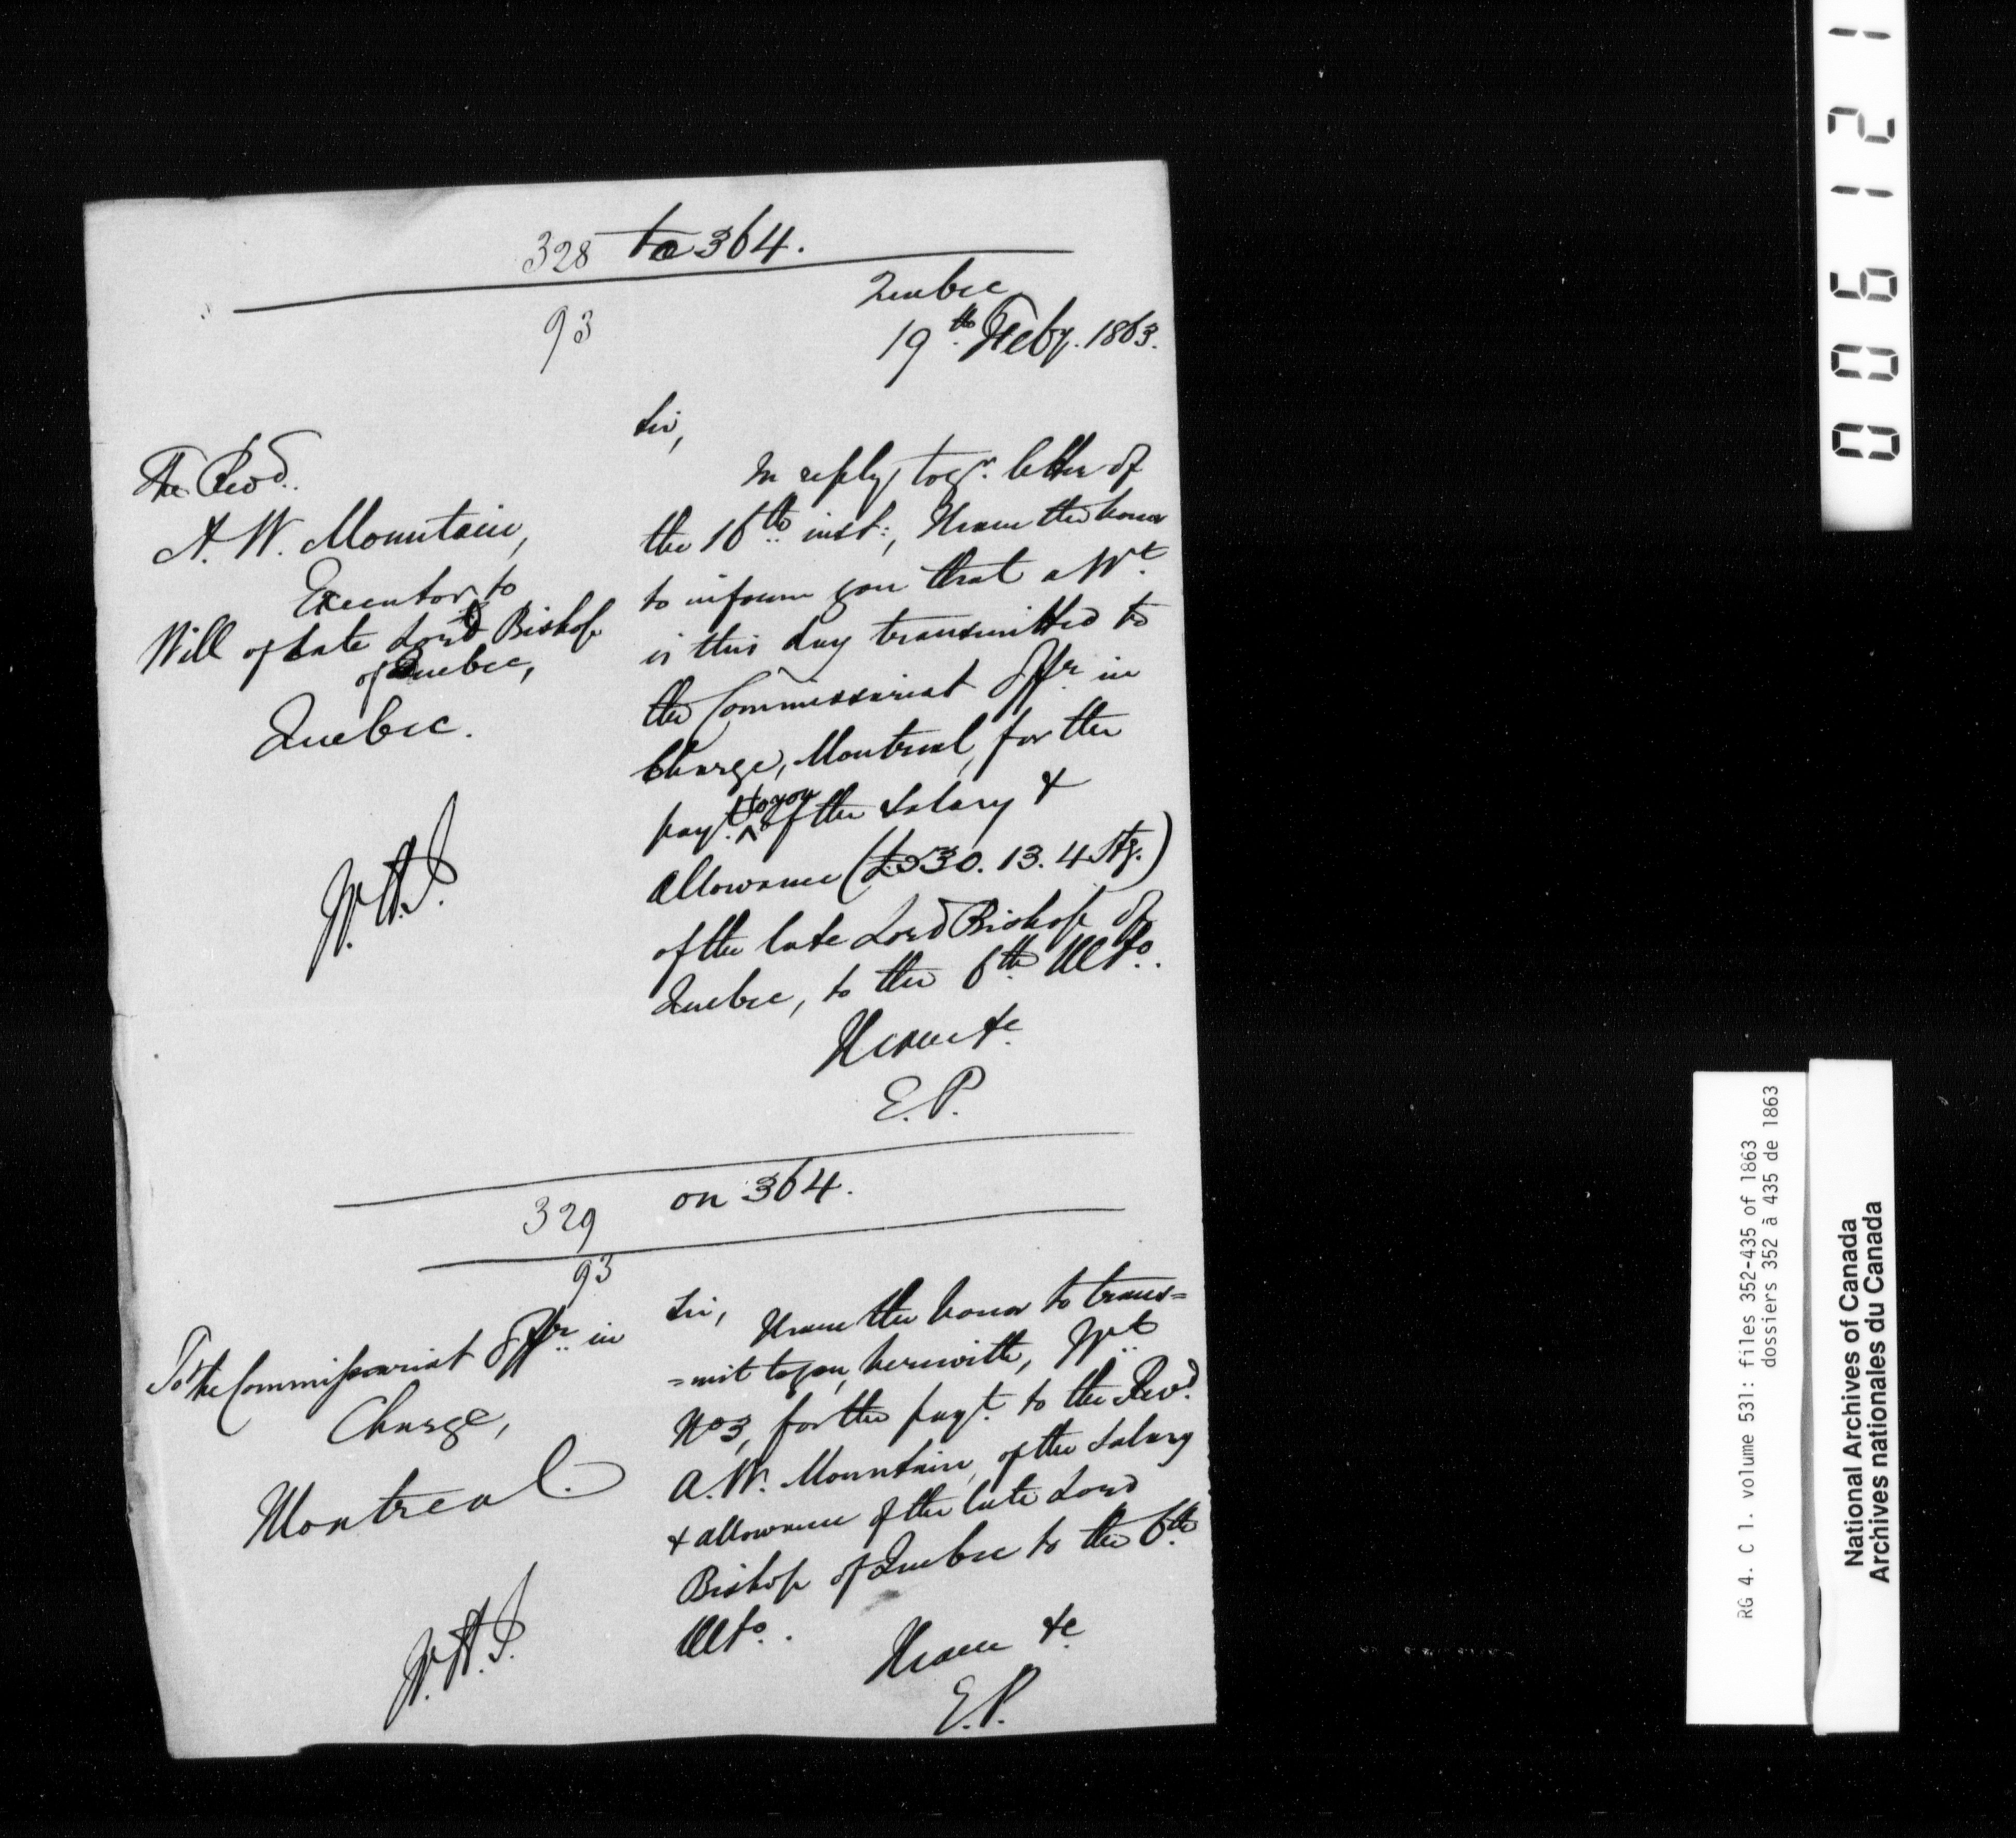 328 to 364.
93
Quebec
19th Feby. 1863.
The Revd.
A. W. Mountain,
Executor to
Will of late Lord Bishop
of Quebec,
Quebec.
Sir,
In reply to yr. letter of
the 16th inst:, I have the honor
to inform you that a Wt.
is this day transmitted to
the Commissariat Offr. in
Charge, Montreal, for the
payt. to you of the Salary &
allowance (£30.13.4 Stg.)
of the late Lord Bishop of
Quebec, to the 6th Ulto.
I have &c
E.P.
329 on 364.
93
To the Commissariat Offr. in
Charge,
Montreal.
Sir,
I have the honor to trans=
=mit to you, herewith, Wt.
No 3, for the payt. to the Revd.
A. W. Mountain, of the Salary
& allowance of the late Lord
Bishop of Quebec to the 6th
Ulto.
I have &c
E.P.
006121
RG 4. C 1. volume 531: files 352-435 of 1863
dossiers 352 à 435 de 1863
National Archives of Canada
Archives nationales du Canada